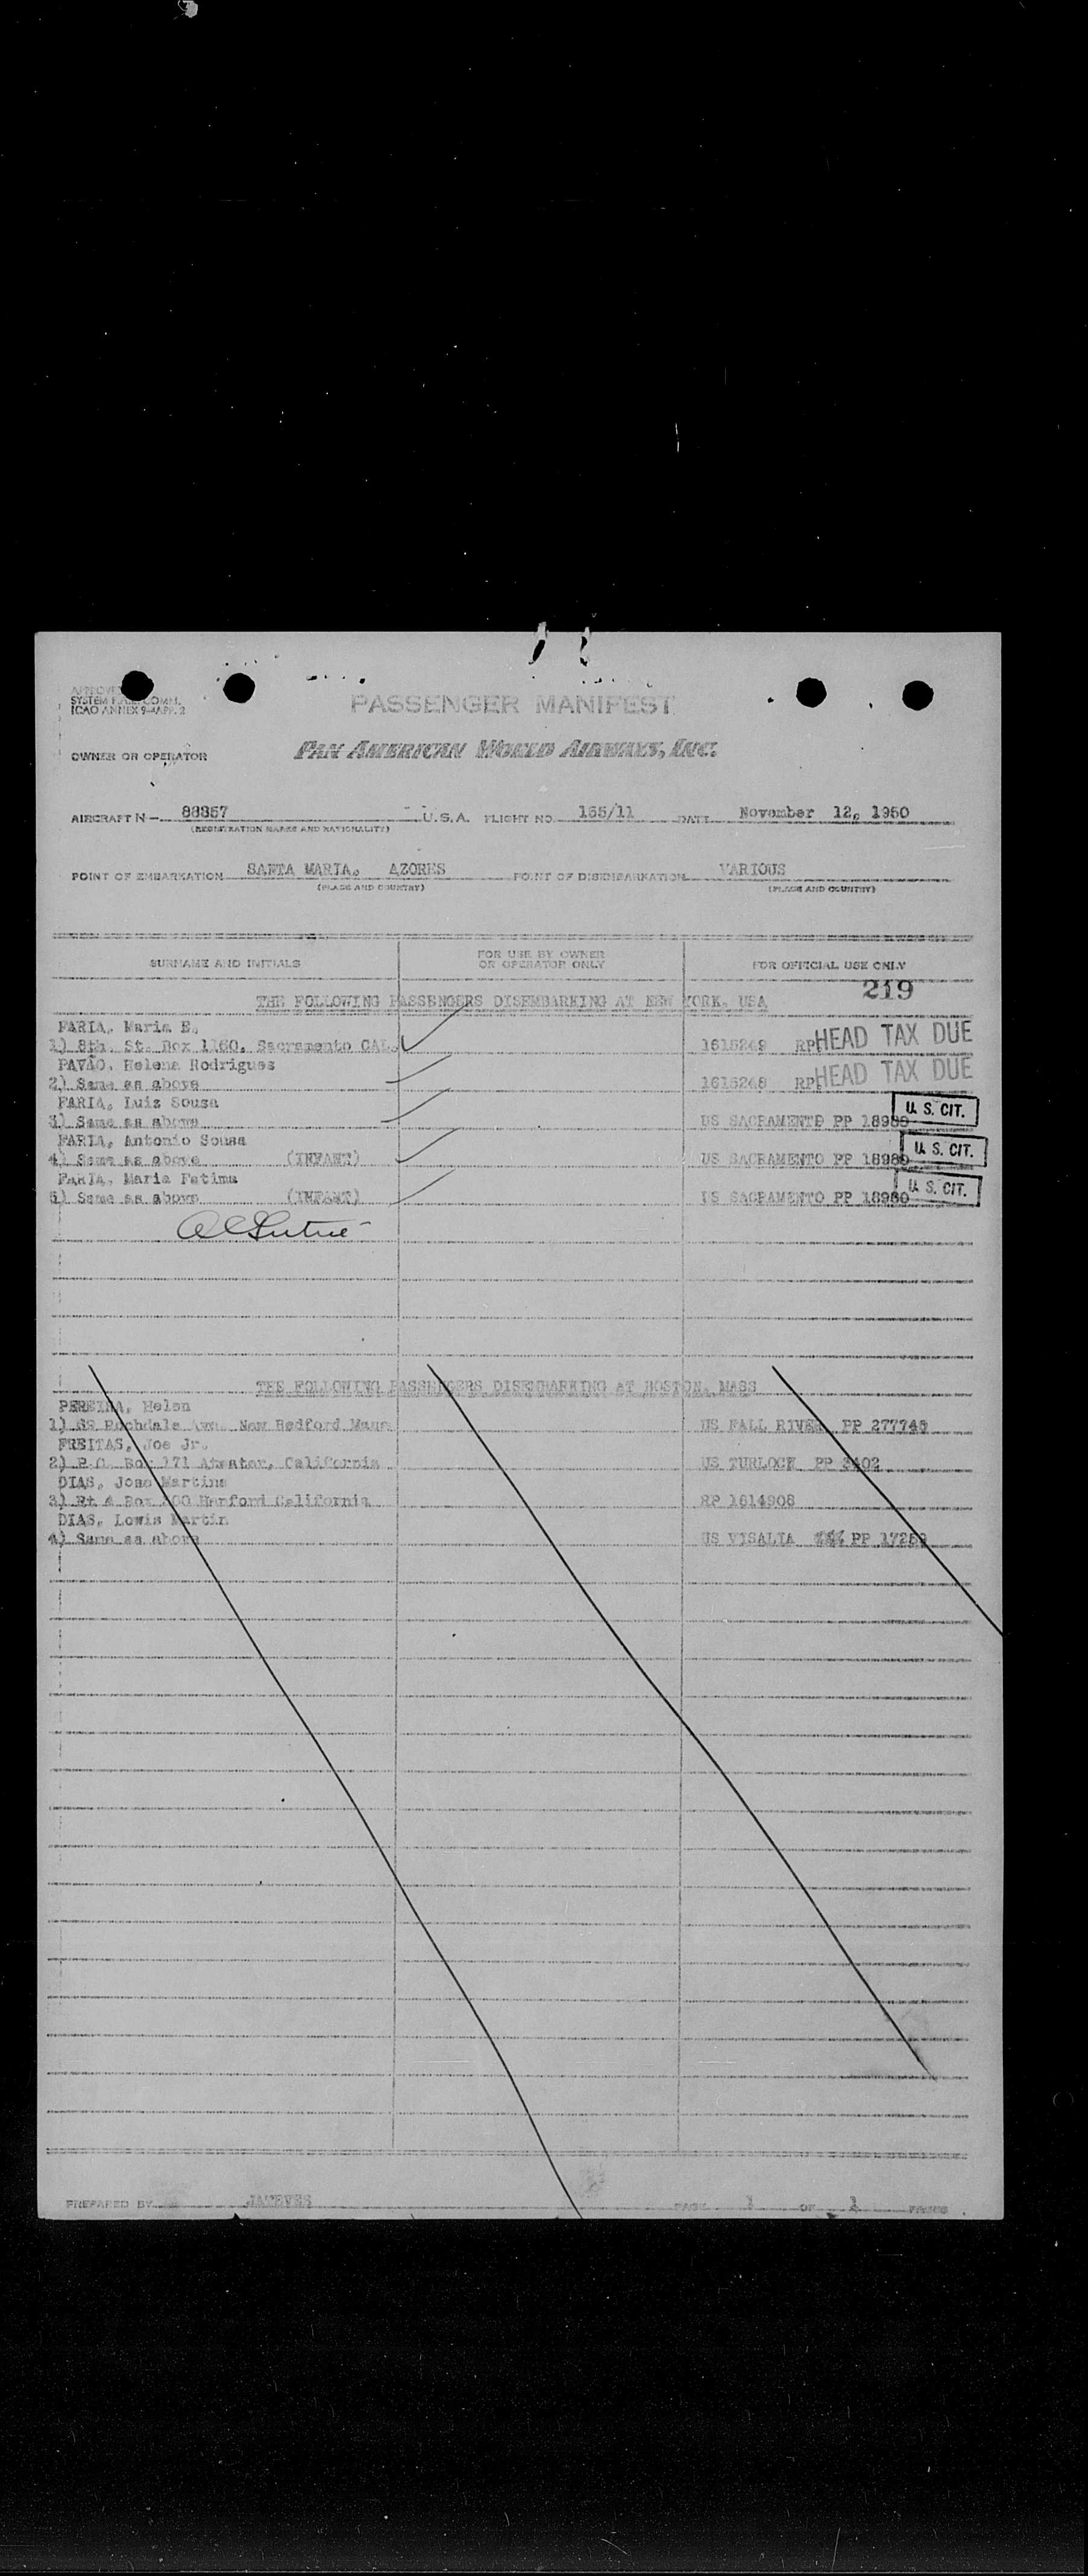 APPROVED
SYSTEM COMM.
ICAO ANNEX 9-APP. 2
PASSENGER MANIFEST
OWNER OR OPERATOR PAN AMERICAN WORLD AIRWAYS, INC.
AIRCRAFT N— 88857 U.S.A. FLIGHT NO. 155/11 DATE November 12, 1950
(REGISTRATION MARKS AND NATIONALITY)
POINT OF EMBARKATION SANTA MARIA, AZORES POINT OF DISEMBARKATION VARIOUS
(PLACE AND COUNTRY) (PLACE AND COUNTRY)
SURNAME AND INITIALS FOR USE BY OWNER OR OPERATOR ONLY FOR OFFICIAL USE ONLY
219
THE FOLLOWING PASSENGERS DISEMBARKING AT NEW YORK, USA
FARIA, Maria E.
1) 8th. St. Box 1160, Sacramento CAL. 1615249 RP HEAD TAX DUE
PAVÃO, Helena Rodrigues
2) Same as above 1615248 RP HEAD TAX DUE
FARIA, Luiz Sousa
3) Same as above US SACRAMENTO PP 18980 U. S. CIT.
FARIA, Antonio Sousa
4) Same as above (INFANT) US SACRAMENTO PP 18980 U. S. CIT.
FARIA, Maria Fatima
5) Same as above (INFANT) US SACRAMENTO PP 18980 U. S. CIT.
THE FOLLOWING PASSENGERS DISEMBARKING AT BOSTON, MASS
PEREIRA, Helen
1) Rochdale Ave. New Bedford Mass US FALL RIVER PP
FREITAS, Joe Jr.
2) P.O. Box 171 Atwater, California US TURLOCK PP 3402
DIAS, Jose Martins
3) Rt 4 Box Hanford California RP 1614908
DIAS, Lewis Martin
4) Same as above US VISALIA PP
PREPARED BY PAGE 1 OF 1 PAGES